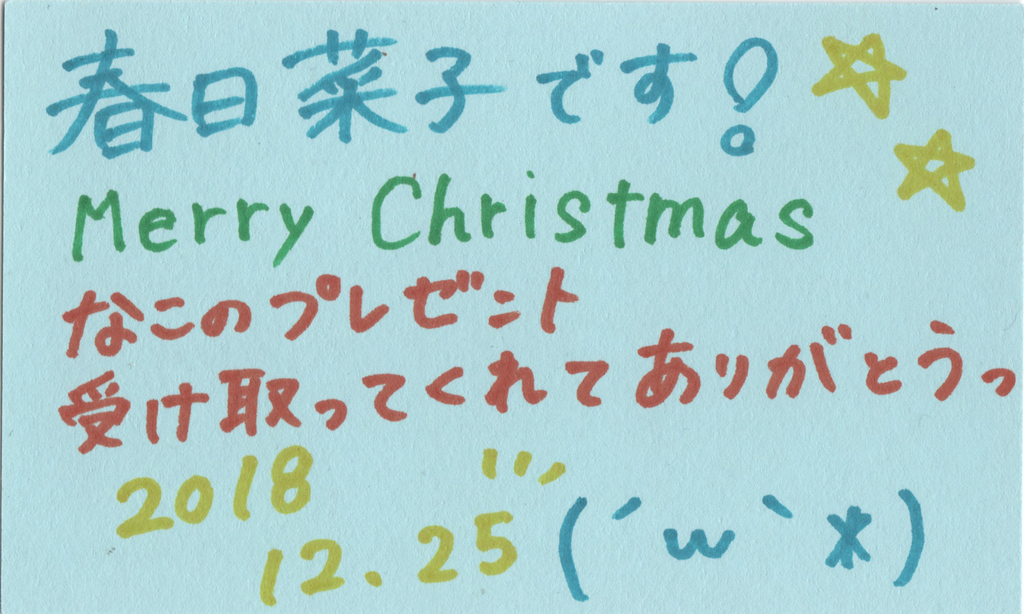 春日菜子です!
Merry Christmas
なこのプレゼント
受け取ってくれてありがとうっ
2018
12.25 (´w`*)